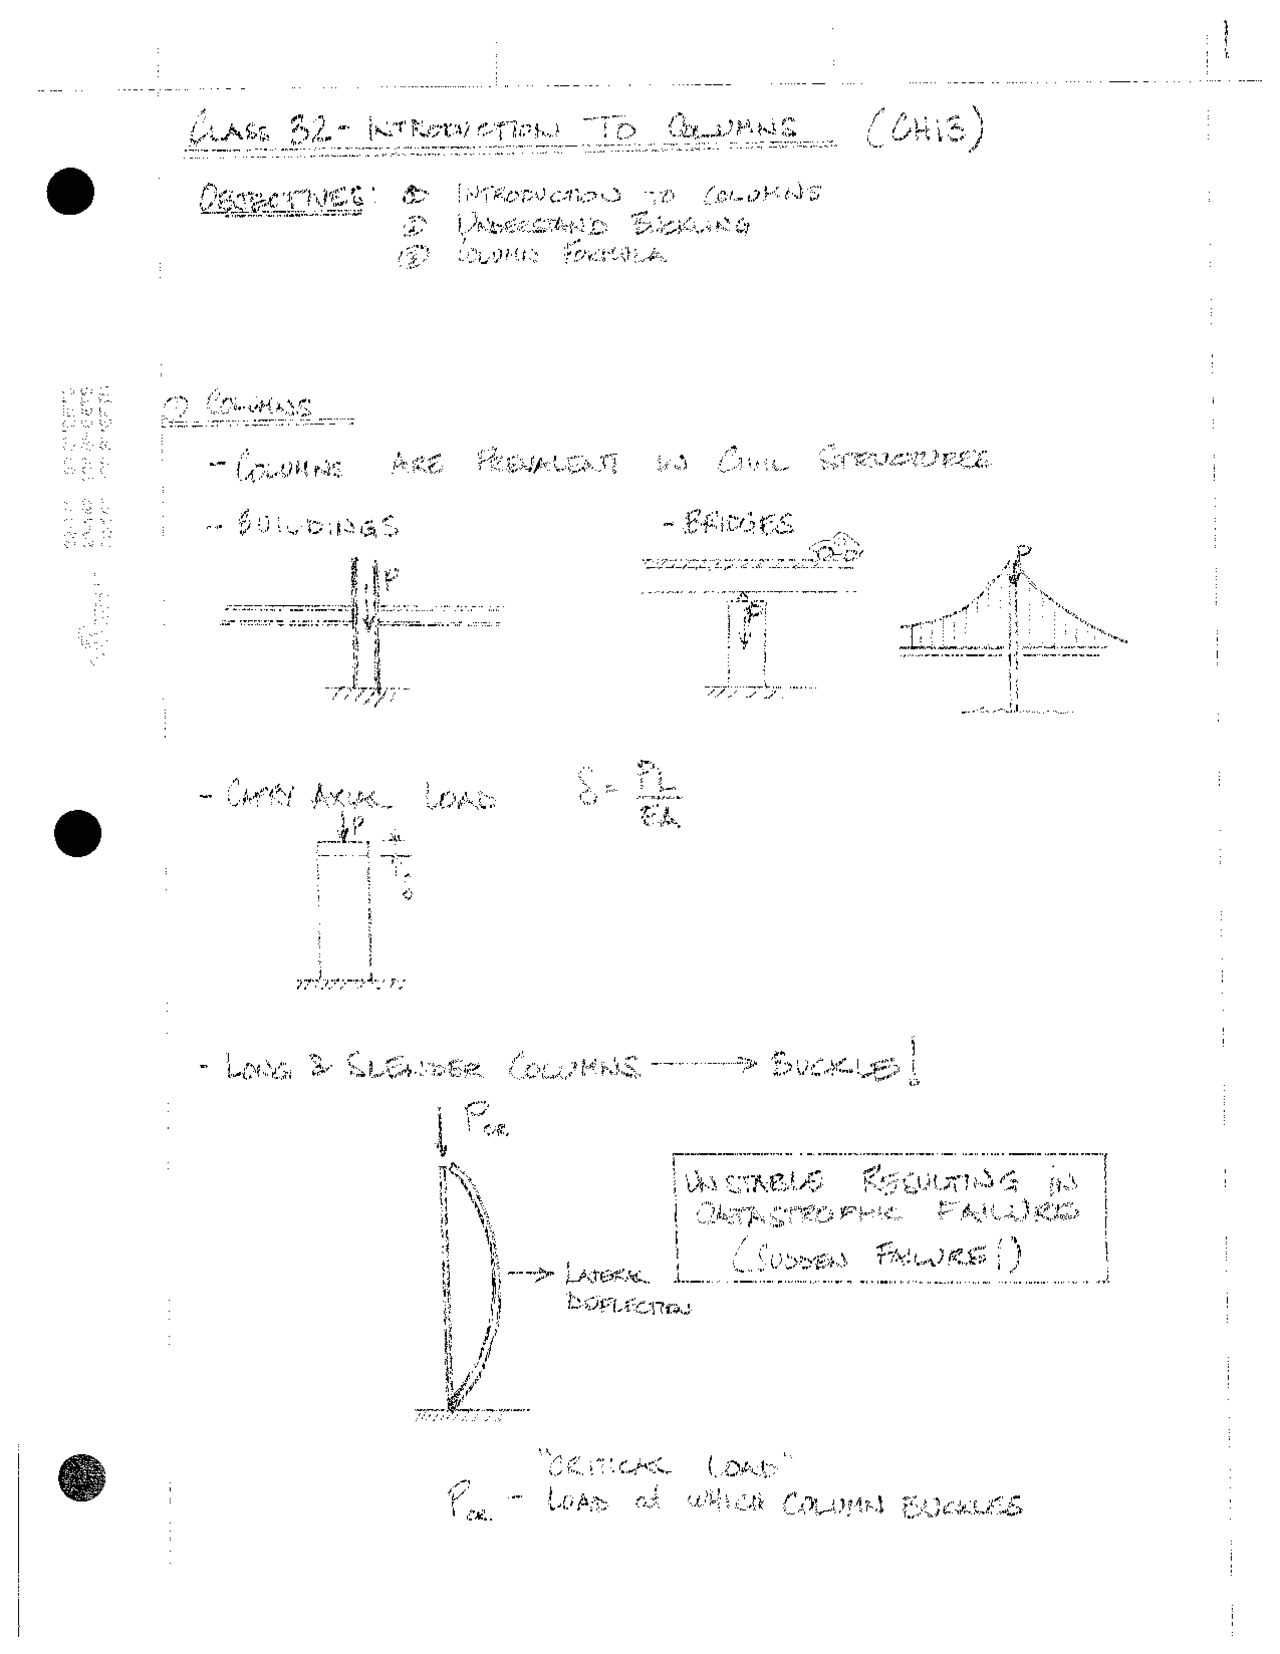 1
CLASS 32 - INTRODUCTION TO COLUMNS (CH13)
OBJECTIVES: ① INTRODUCTION TO COLUMNS
② UNDERSTAND BUCKLING
③ COLUMN FORMULA
① COLUMNS
- COLUMNS ARE PREVALENT IN CIVIL STRUCTURES
- BUILDINGS - BRIDGES
P
P
P
- CARRY AXIAL LOAD δ = PL/EA
P
δ
- LONG & SLENDER COLUMNS → BUCKLES!
PCR
UNSTABLE RESULTING IN
CATASTROPHIC FAILURE
(SUDDEN FAILURE!)
→ LATERAL
DEFLECTION
"CRITICAL LOAD"
PCR - LOAD at WHICH COLUMN BUCKLES